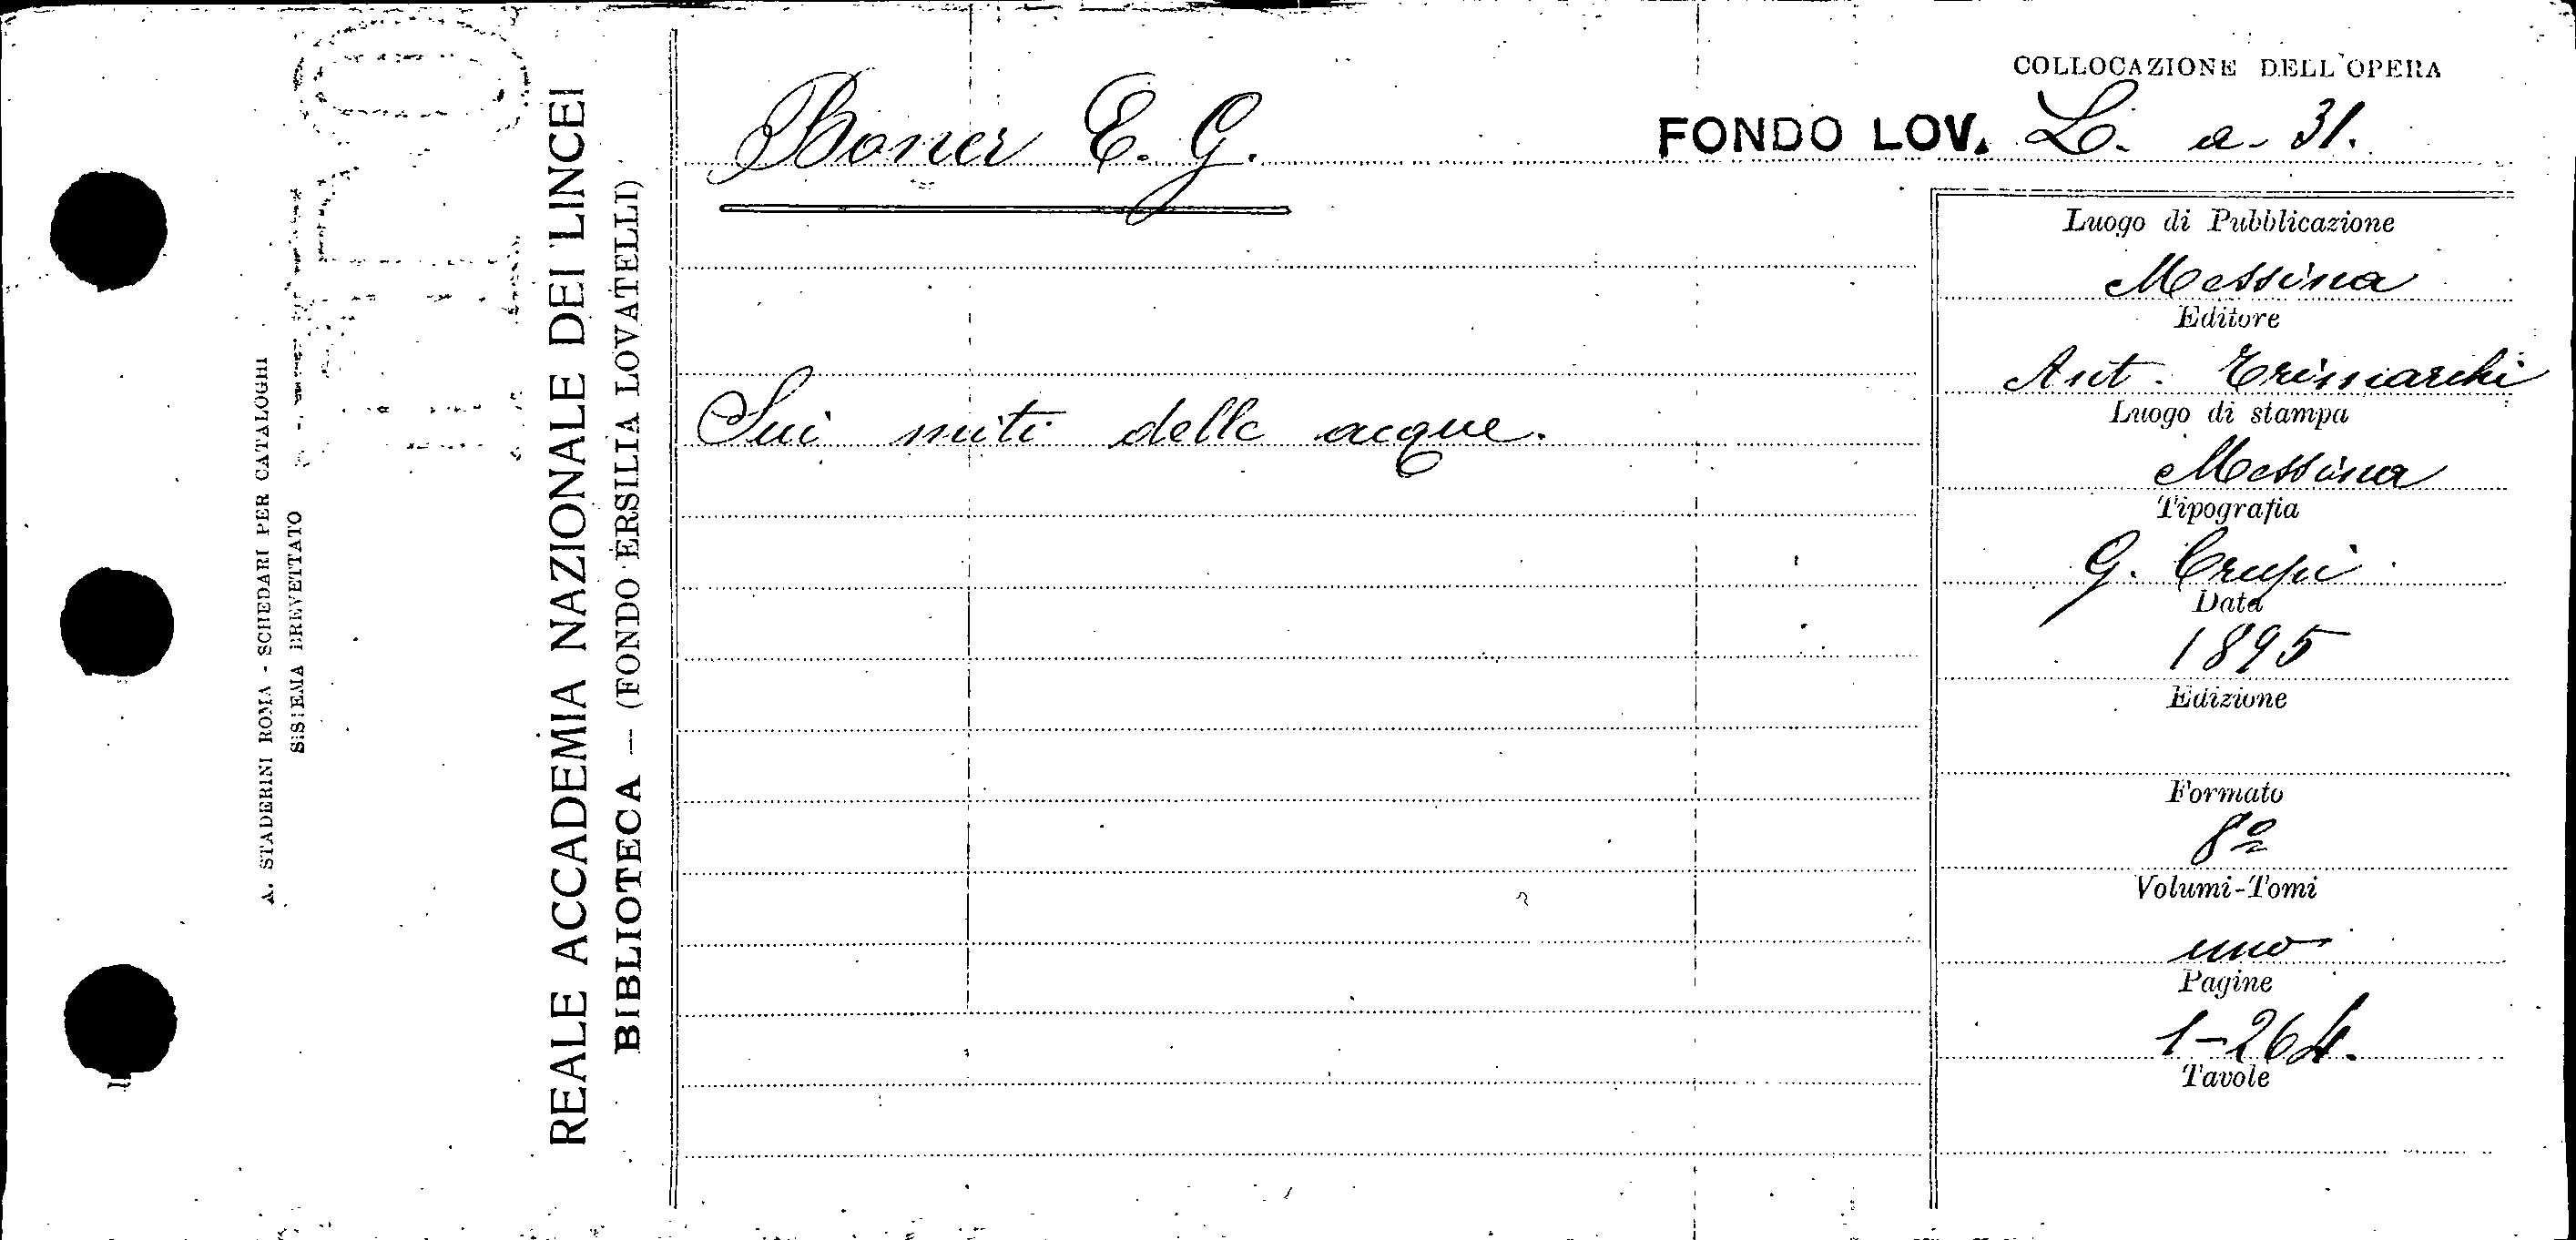 COLLOCAZIONE DELL'OPERA
Boner E. G.
FONDO LOV. L. a. 31.
Sui miti delle acque.
Luogo di Pubblicazione
Messina
Editore
Ant. Trimarchi
Luogo di stampa
Messina
Tipografia
G. Crupi
Data
1895
Edizione
Formato
8º
Volumi-Tomi
uno
Pagine
1-264.
Tavole
REALE ACCADEMIA NAZIONALE DEI LINCEI
BIBLIOTECA — (FONDO ERSILIA LOVATELLI)
A. STADERINI ROMA - SCHEDARI PER CATALOGHI
SISTEMA BREVETTATO